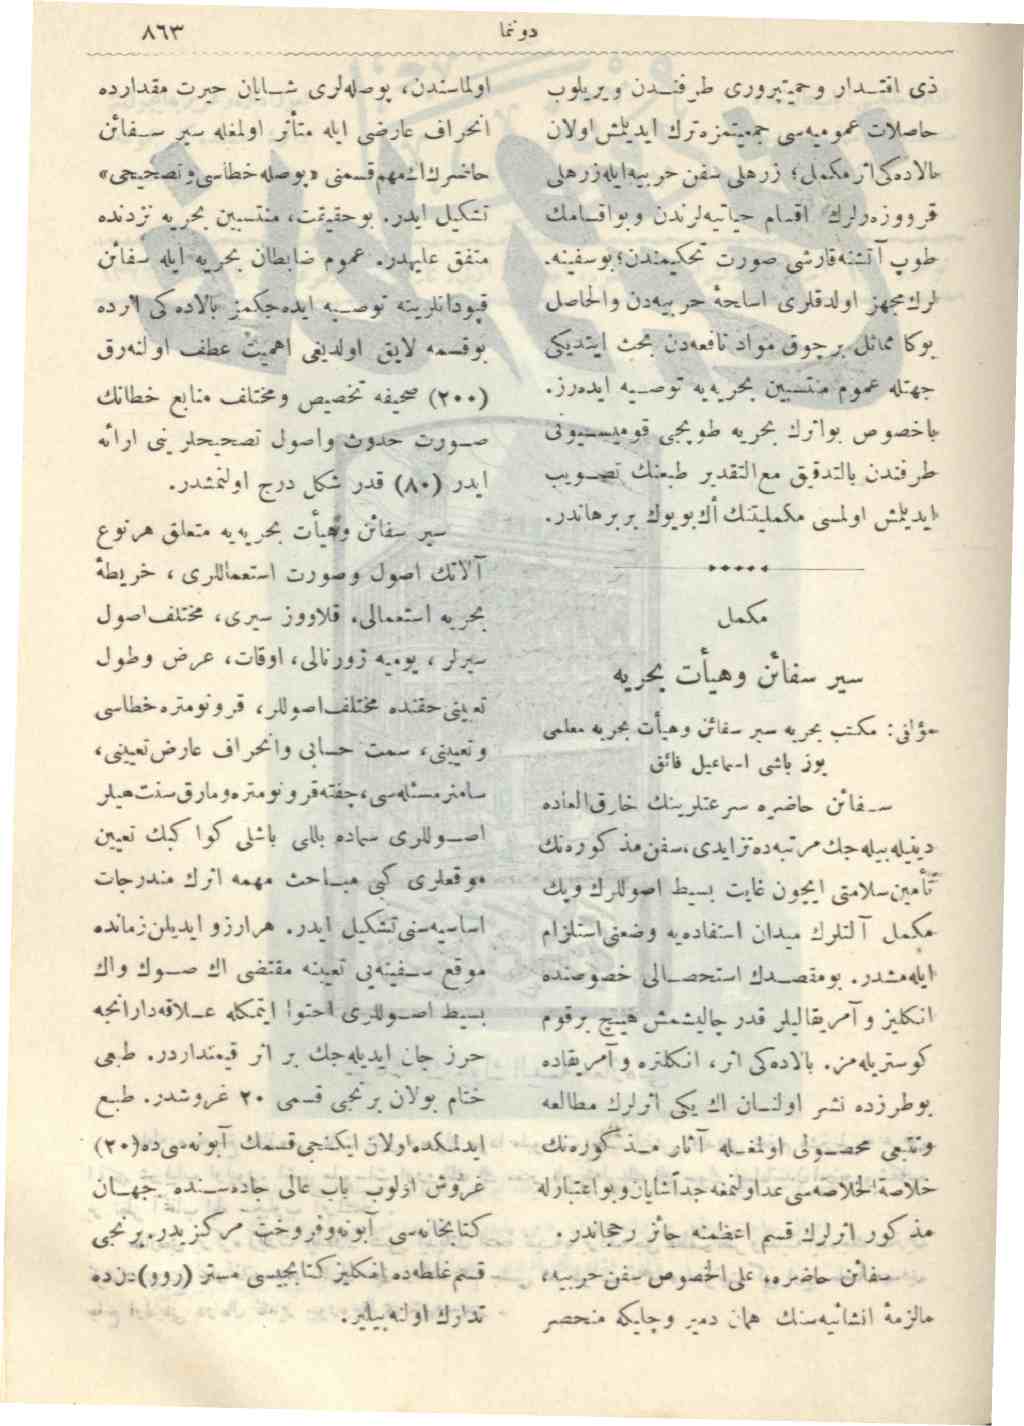 دوننما
٨٦٣
ذی اقتــدار و حمیتپروری طرفنــدن ویریلوب
حاصلات عمومیه‌سی جمعیتمزه ترك ایدیلمش اولان
بالاده‌کی اثر مکمل؛ زرهلی سفن حربیه ایله زرهلی
قرووزه‌رلرك اقسام حیاتیه‌لرندن و بو اقسامك
طوپ آتشنه قارشی صورت تحکیمندن؛ بوسفینه‌
لرك مجهز اولدقلری اسلحهٔ حربیه‌دن والحاصل
بوکا مماثل برچوق مواد نافعه‌دن بحث ایتدیکی
جهتله عموم منتسبین بحریه‌یه توصــیه ایده‌رز.
باخصوص بواثرك بحریه طوپجی قومیسیونی
طرفندن بالتدقیق مع‌التقدیر طبعنك تصــویب
ایدیلمش اولمسی مکملیتنك أك بویوك بر برهاندر.
مکمل
سیر سفائن وهیأت بحریه
مؤلفی: مکتب بحریه سیر سفائن وهیأت بحریه معلمی
یوز باشی اسماعیل فائق
ســفائن حاضره سرعتلرینك خارق‌العاده
دینیله‌بیله‌جك مرتبه‌ده تزایدی، سفن مذکوره‌نك
تأمین سلامتی ایچون غایت بسیط اصوللرك وپك
مکمل آلتلرك میدان استفاده‌یه وضعنی استلزام
ایله‌مشدر. بومقصــدك استحصــالی خصوصنده
انکلیز و آمریقالیلر قدر چالیشمش هیچ برقوم
کوستریله‌مز. بالاده‌کی اثر، انکلتره و آمریقاده
بوطرزده نشر اولنــان اك یکی اثرلرك مطالعه
وتتبعی محصــولی اولمغــله آثار مــذکوره‌نك
خلاصة الخلاصه‌سی عد اولنمغه جداً شایان و بو اعتبارله
مذکور اثرلرك قسم اعظمنه جائز رجحاندر.
سفائن حاضره، علی‌الخصوص سفن حربیه،
مالزمهٔ انشائیه‌سنك همان دمیر و چلیکه منحصر
اولماسندن، پوصله‌لری شــایان حیرت مقدارده
انحراف عارضی ایله متأثر اولمغله سیر ســفائن
حاضرك اك مهم قسمنی «پوصله خطاسی و تصحیحی»
تشکیل ایدر. بوحقیقت، منتسبین بحریه نزدنده
متفق علیهدر. عموم ضابطان بحریه ایله سفائن
قپودانلرینه توصــیه ایده‌جکمز بالاده‌کی اثرده
بوقسمه لایق اولدیغی اهمیت عطف اولنه‌رق
(٢٠٠) صحیفه تخصیص ومختلف منابع خطانك
صــورت حدوث واصول تصحیحلرینی ارائه
ایدر (٨٠) قدر شکل درج اولنمشدر.
سیر سفائن وهیأت بحریه‌یه متعلق هرنوع
آلاتك اصول وصورت استعماللری، خریطهٔ
بحریه استعمالی، قلاووز سیری، مختلف اصول
سیرلر، یومیه ژورنالی، اوقات، عرض وطول
تعیینی حقنده مختلف اصوللر، قرونومتره خطاسی
وتعیینی، سمت حسابی وانحراف عارض تعیینی،
سامنر مسئله‌سی، چفته قرونومتره ومارق سنت هیلر
اصــوللری سماده بللی باشلی کواکبك تعیین
موقعلری کبی مبــاحث مهمه اثرك مندرجات
اساسیه‌سنی تشکیل ایدر. هر ارزو ایدیلن زمانده
موقع ســفینه‌یی تعیینه مقتضی اك صــوك واك
بسیط اصــوللری احتوا ایتمکله عــلاقه‌دارانجه
حرز جان ایدیله‌جك بر اثر قیمتداردر. طبعی
ختام بولان برنجی قسمی ٢٠ غروشدر. طبــع
ایدلمکده اولان ایکنجی قسمك آبونه‌سی ده (٢٠)
غروش اولوب باب عالی جاده‌ســنده جهــان
کتابخانه‌سی آبونه و فروخت مرکزیدر. برنجی
قسم غلطه‌ده انکلیز کتابجیسی مستر (روو)دن ده
تدارك اولنه‌بیلیر.